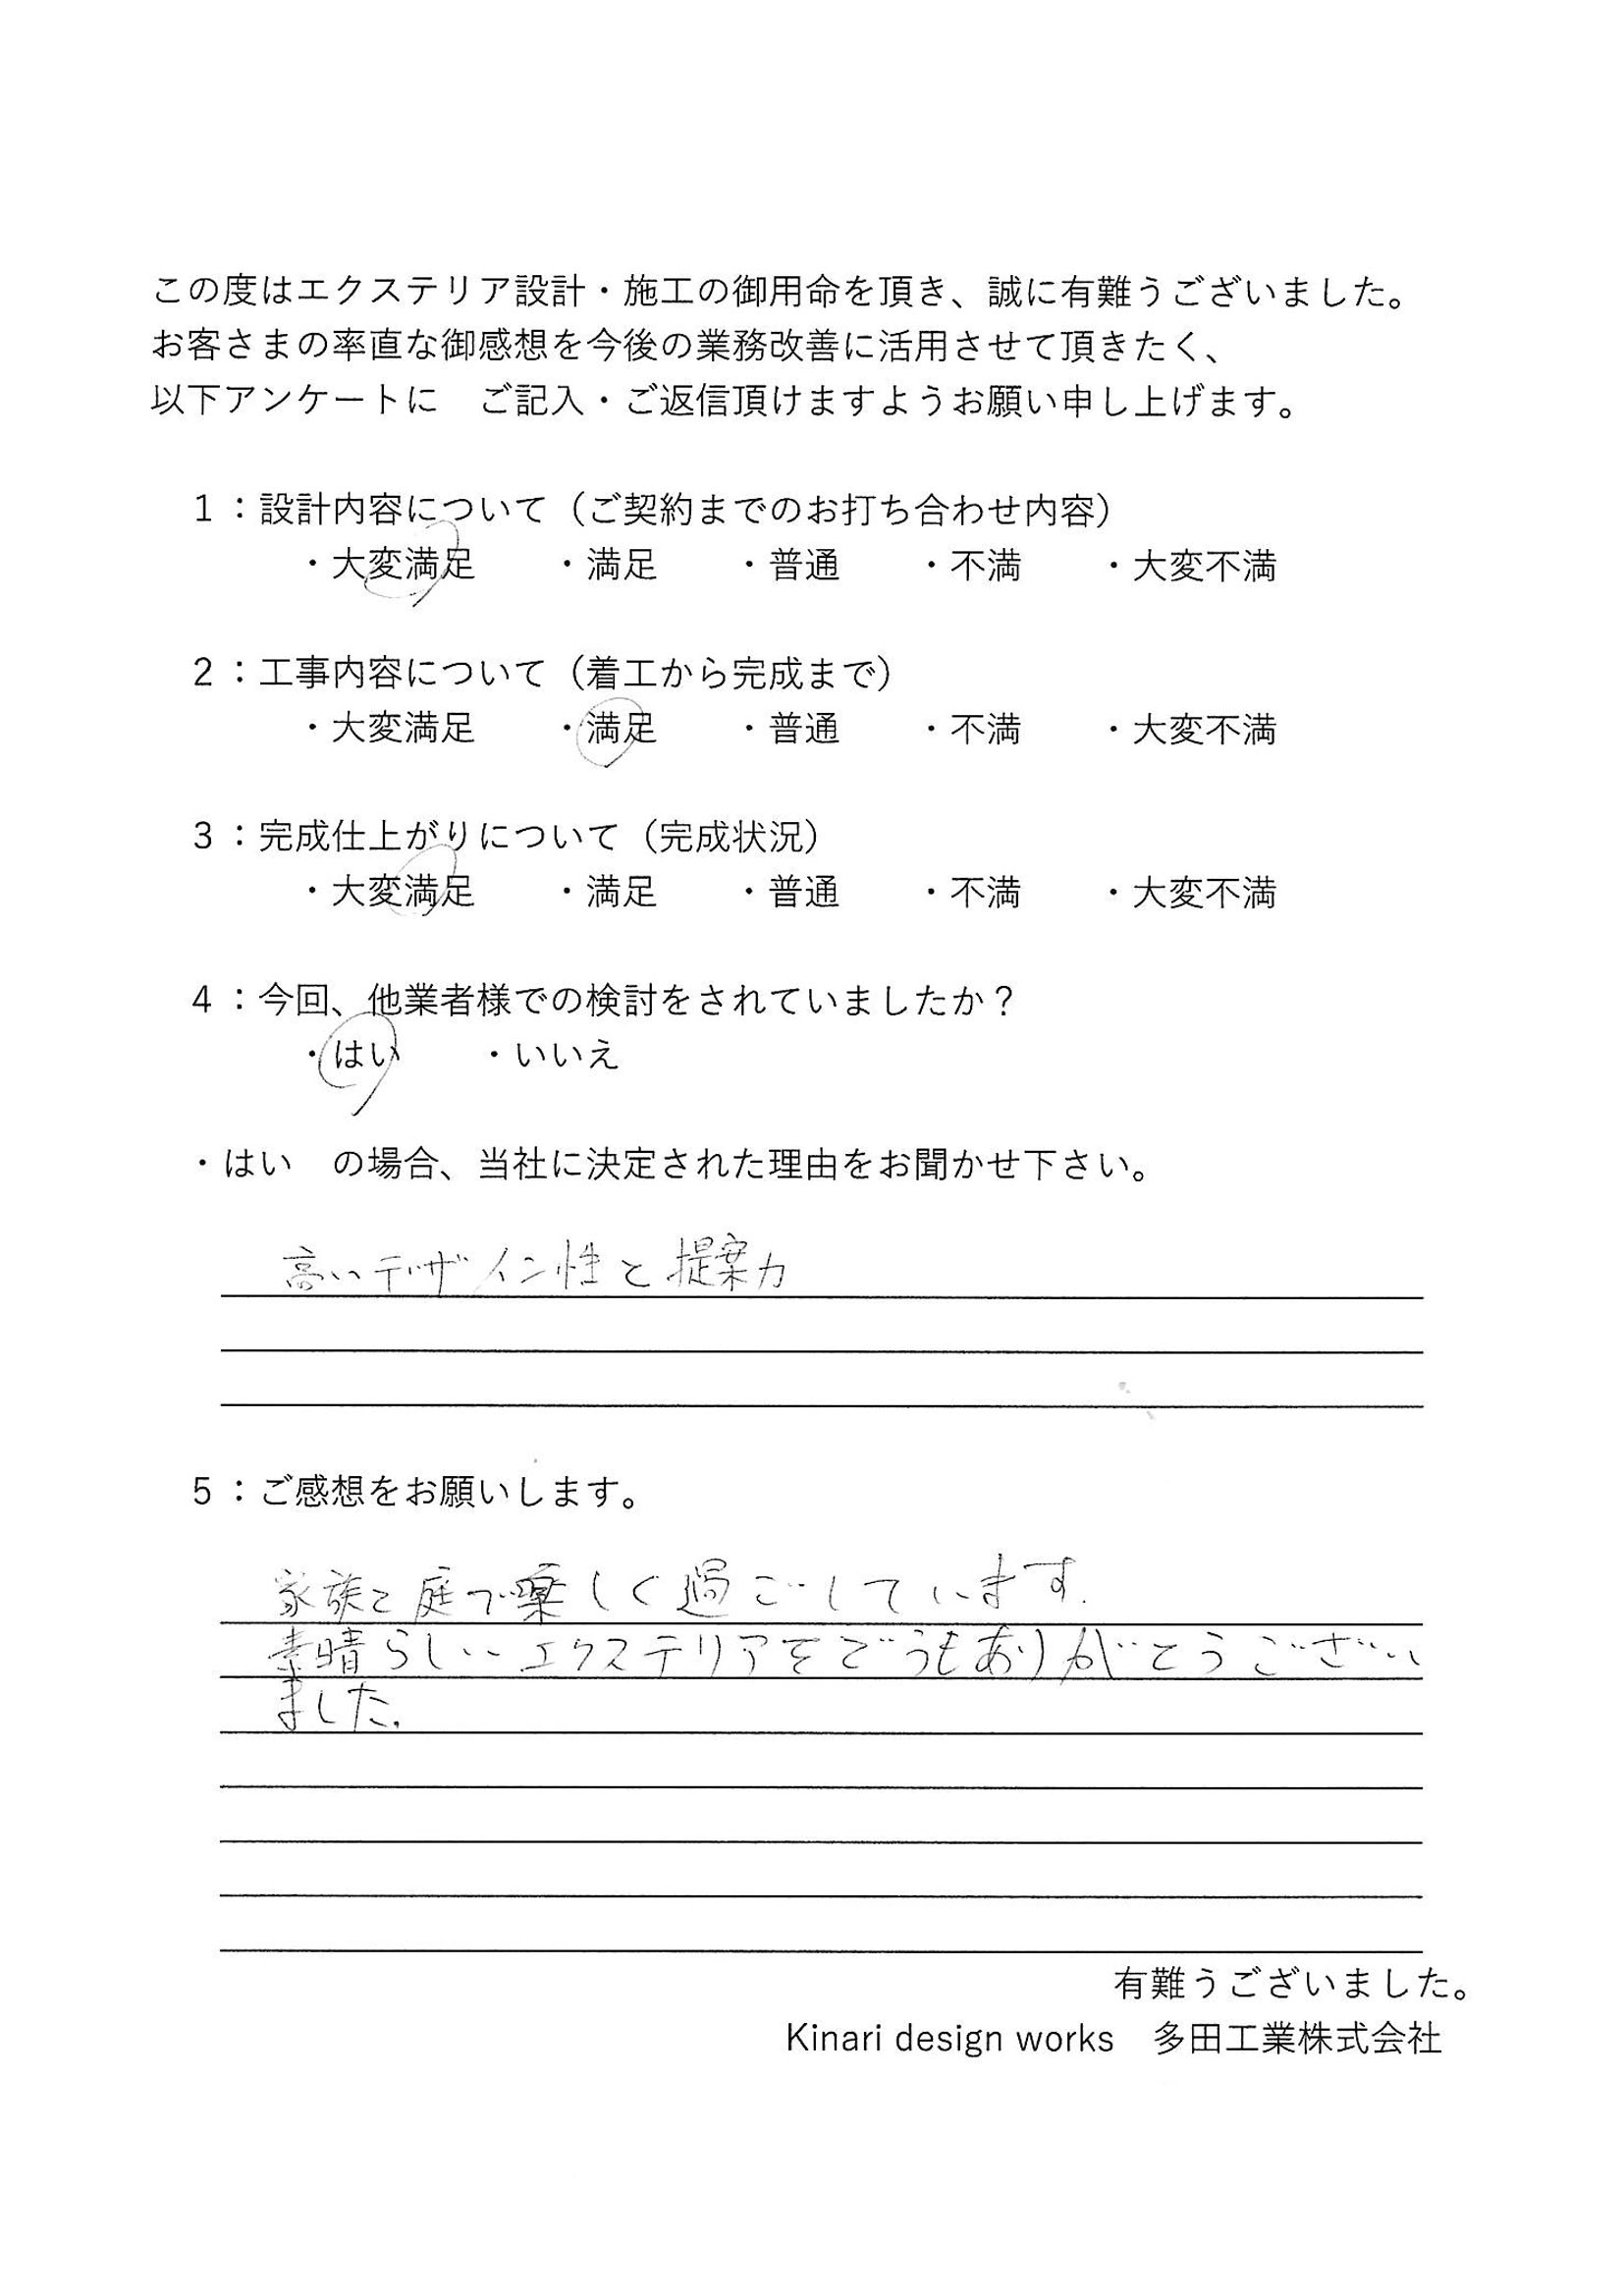 この度はエクステリア設計・施工の御用命を頂き、誠に有難うございました。
お客さまの率直な御感想を今後の業務改善に活用させて頂きたく、
以下アンケートに　ご記入・ご返信頂けますようお願い申し上げます。
1：設計内容について（ご契約までのお打ち合わせ内容）
・大変満足　・満足　・普通　・不満　・大変不満
2：工事内容について（着工から完成まで）
・大変満足　・満足　・普通　・不満　・大変不満
3：完成仕上がりについて（完成状況）
・大変満足　・満足　・普通　・不満　・大変不満
4：今回、他業者様での検討をされていましたか？
・はい　・いいえ
・はい　の場合、当社に決定された理由をお聞かせ下さい。
高いデザイン性と提案力
5：ご感想をお願いします。
家族と庭で楽しく過ごしています.
素晴らしいエクステリアをどうもありがとうござい
ました.
有難うございました。
Kinari design works　多田工業株式会社